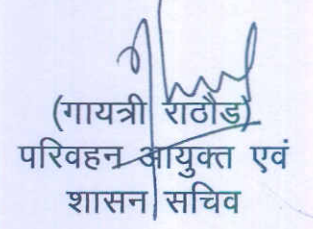 (गायत्री राठौड)
परिवहन आयुक्त एवं
शासन सचिव